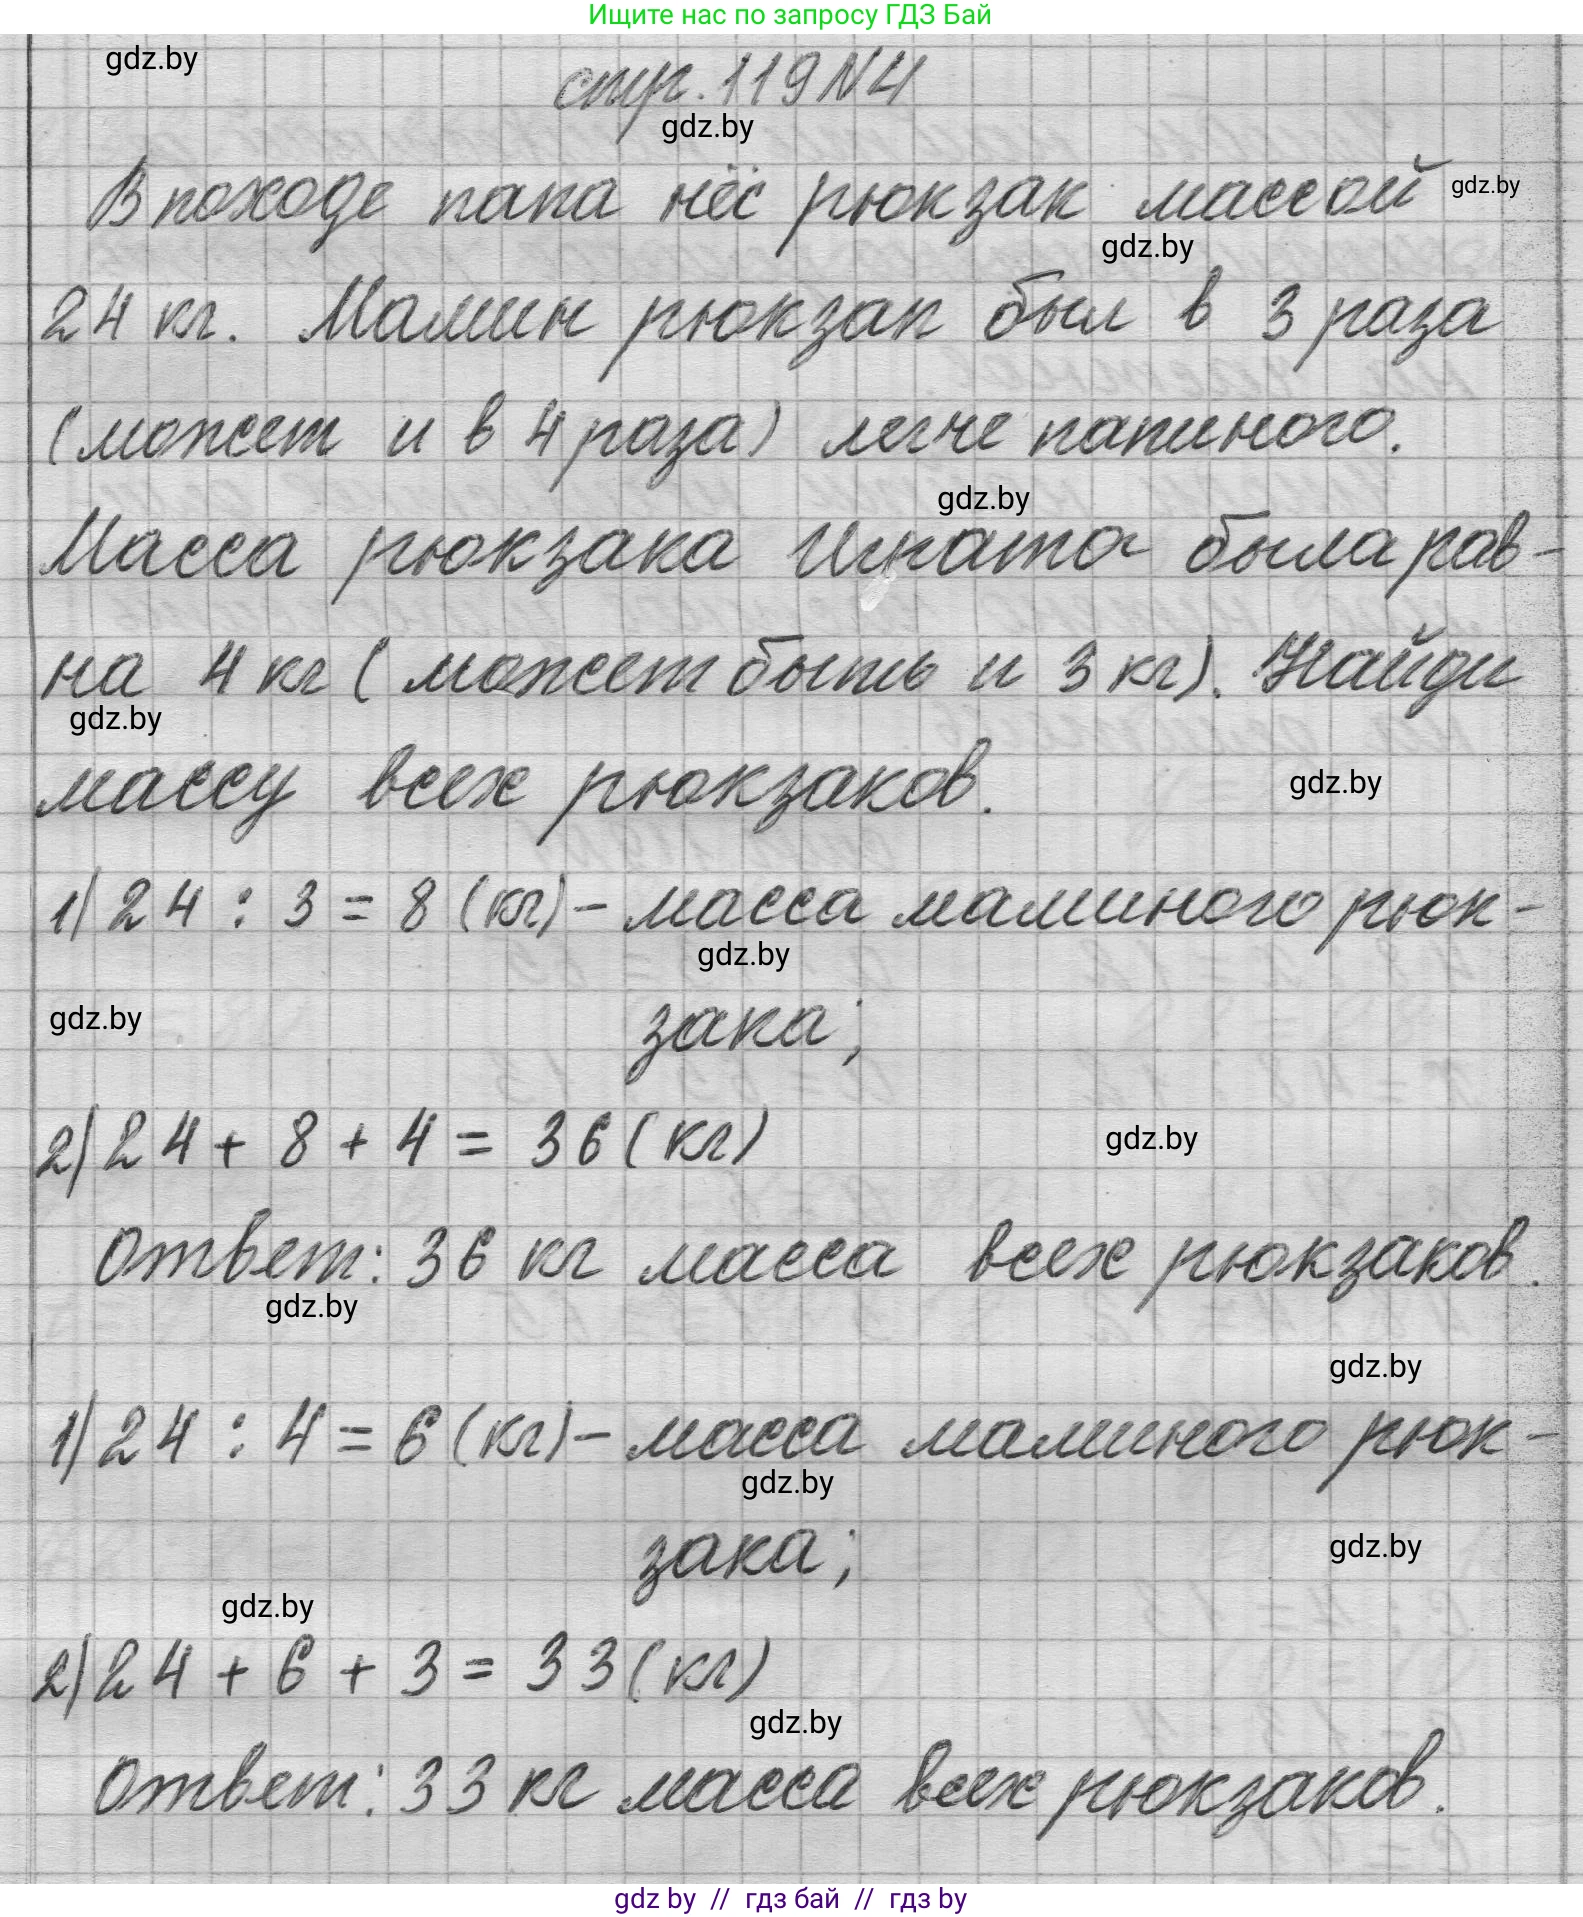 Ищите нас по запросу ГДЗ Бай
gdz.by
стр. 119 N4
gdz.by
В походе папа нёс рюкзак массой
gdz.by
gdz.by
24 кг. Мамин рюкзак был в 3 раза
(может и в 4 раза) легче папиного.
gdz.by
Масса рюкзака Игната была рав-
на 4 кг (может быть и 3 кг). Найди
gdz.by
массу всех рюкзаков.
gdz.by
1) 24 : 3 = 8 (кг) - масса маминого рюк-
gdz.by
gdz.by
зака;
2) 24 + 8 + 4 = 36 (кг)
gdz.by
Ответ: 36 кг масса всех рюкзаков.
gdz.by
gdz.by
1) 24 : 4 = 6 (кг) - масса маминого рюк-
gdz.by
зака;
gdz.by
gdz.by
2) 24 + 6 + 3 = 33 (кг)
gdz.by
Ответ: 33 кг масса всех рюкзаков.
gdz by // гдз бай // гдз by